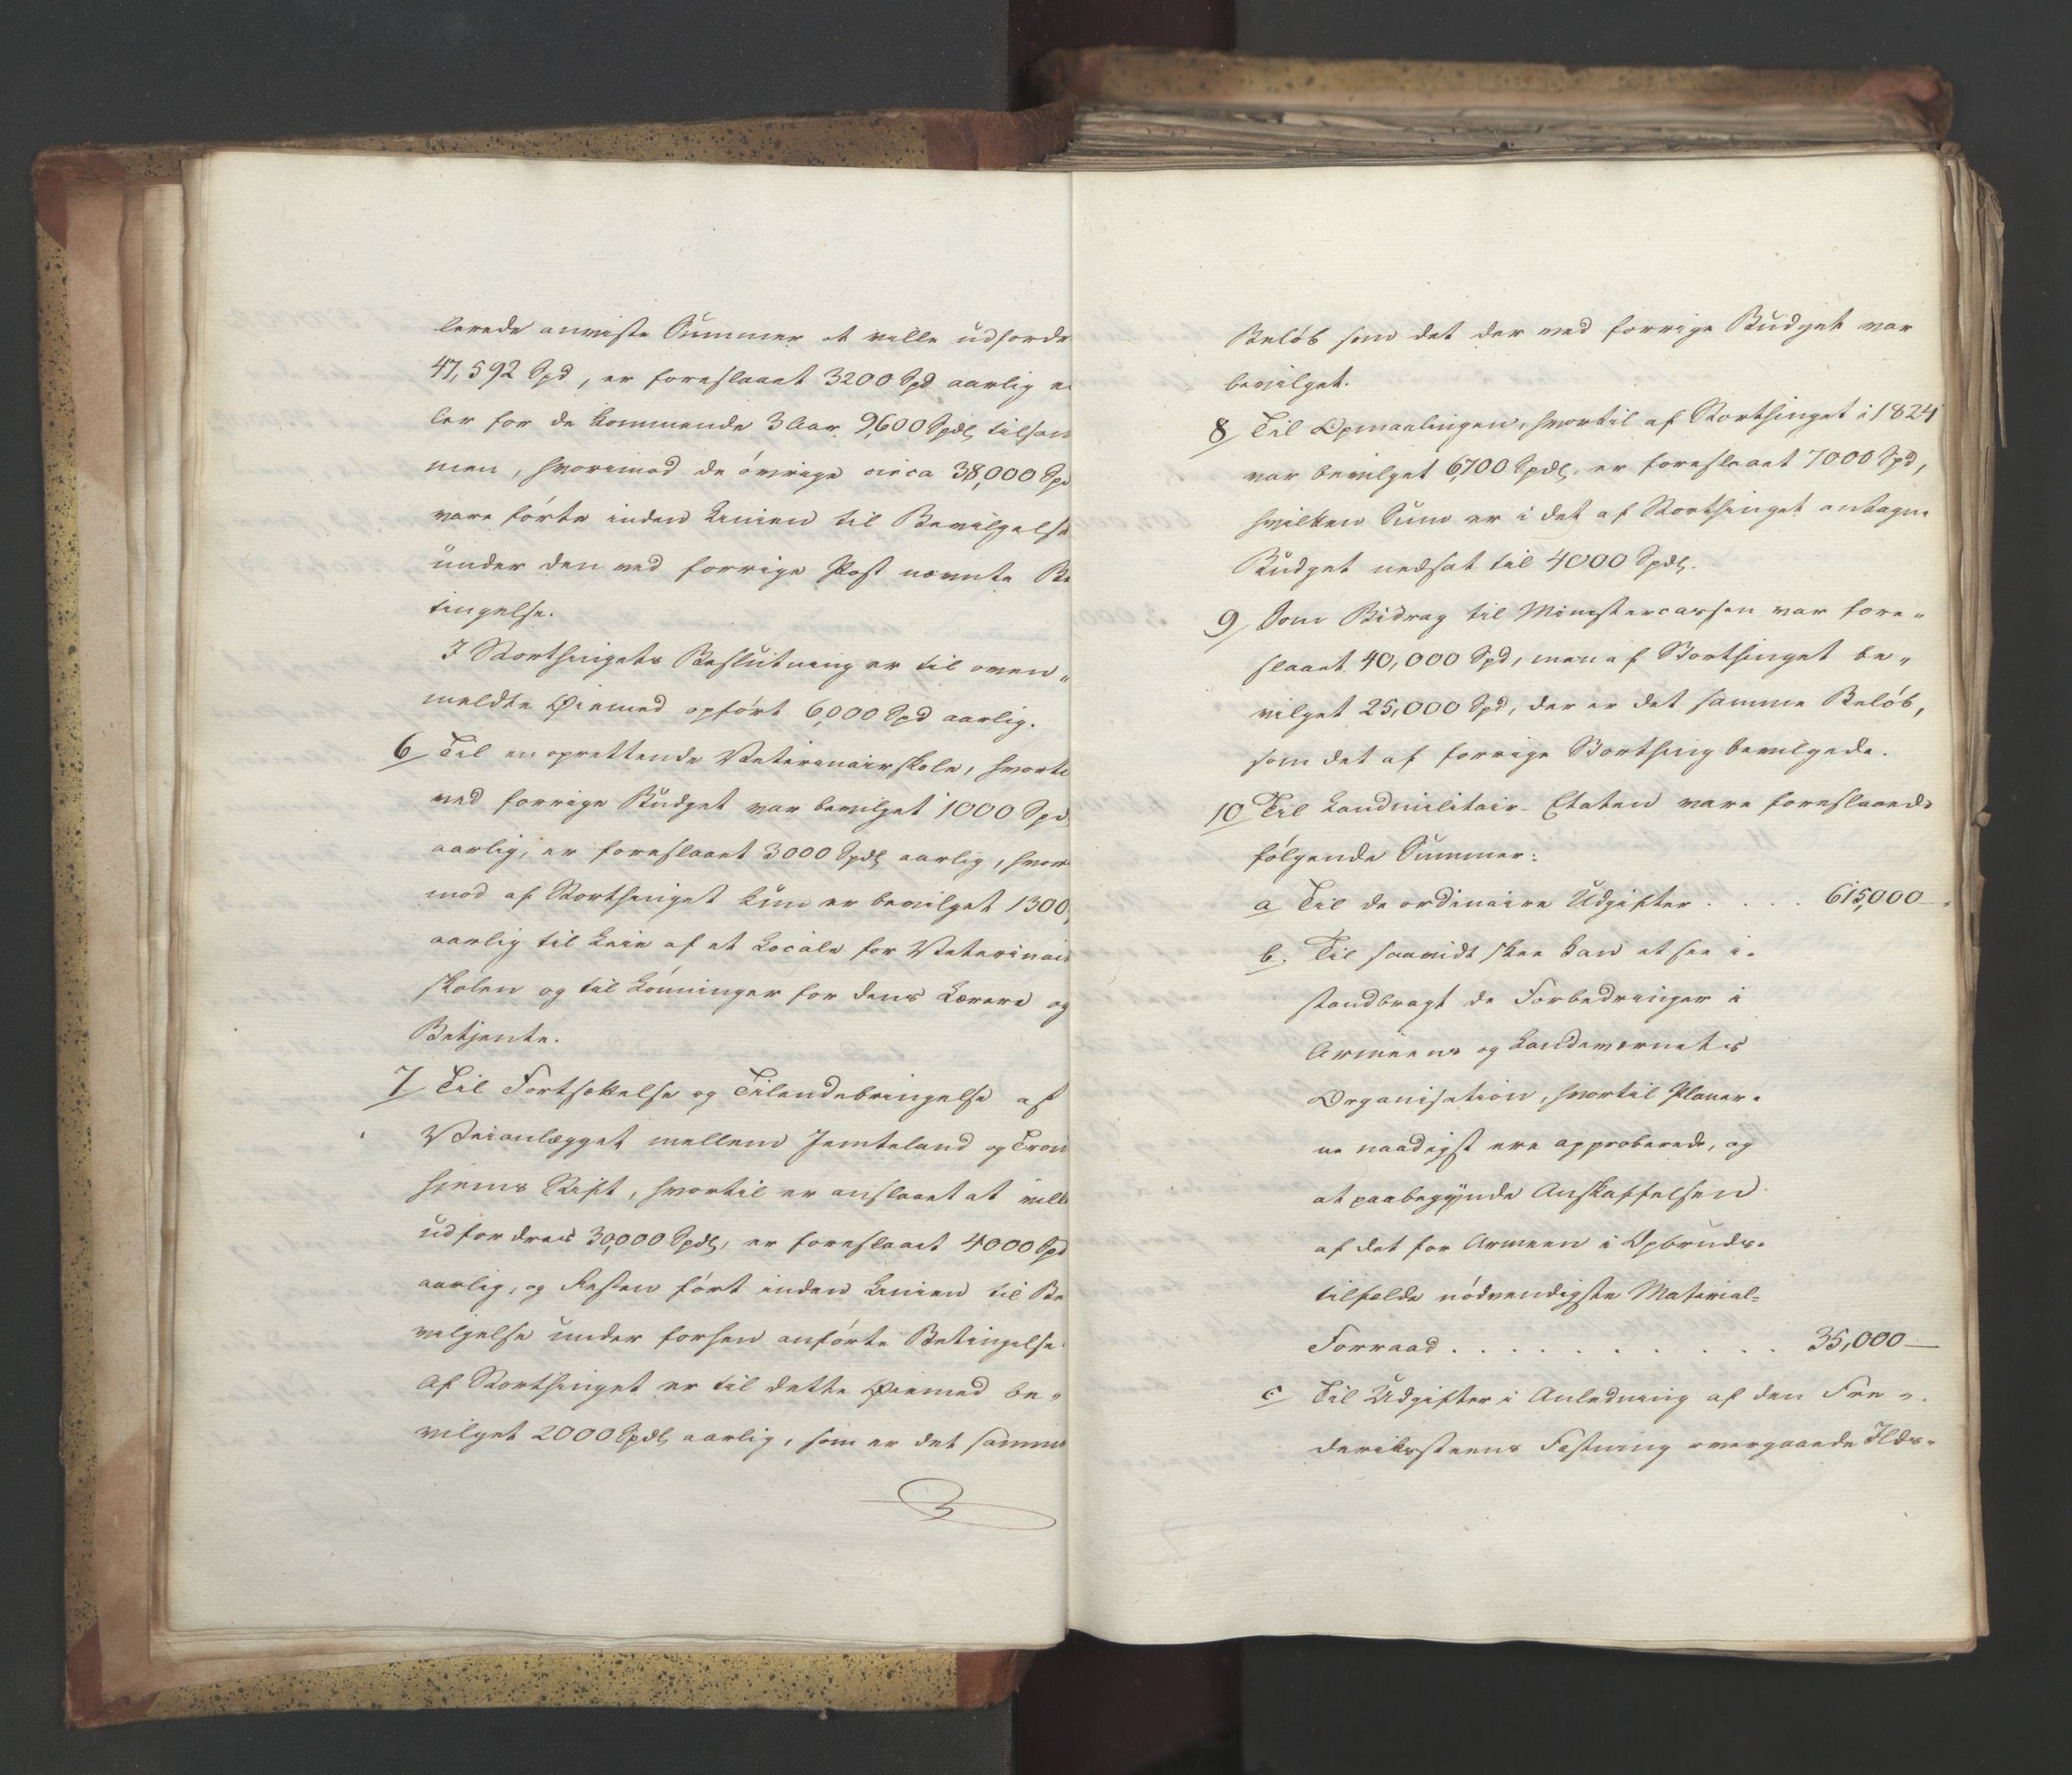 lerede anviste Summer at ville udfordr
47,592 Spd, er foreslaaet 3200 Spd aarlig e
ler for de kommende 3 Aar 9,600 Spdl, tilsam
men, hvorimod de övrige circa 38,000 Spd
vare förte inden Linien til Bevilgelse
under den ved forrige Post nævnte Be
tingelse.
I Storthingets Beslutning er til oven„
meldte Øiemed opfört 6,000 Spd aarlig.
6 Til en oprettende Veterinairskole, hvorti
ved forrige Budget var bevilget 1000 Spd
aarlig, er foreslaaet 3000 Spdl, aarlig, hvor
mod af Storthinget kun er bevilget 1300,
aarlig til Leie af et Locale for Veterinair
skolen og til Lönninger for dens Lærere og
Betjente.
7 Til Fortsættelse og Tilendebringelse af
Veianlægget mellem Jemteland og Tron
hjems Stift, hvortil er anslaaet at ville
udfordres 30,000 Spdl, er foreslaaet 4000 Spd
aarlig, og Resten fört inden Linien til Be
velgelse under forhen anförte Betingelse.
Af Storthinget er til dette Øiemed be„
vilget 2000 Spdl, aarlig, som er det samme
Belöb som det der ved forrige Budget var
bevilget.
8 Til Opmaalingen, hvortil af Storthinget i 1824
var bevilget 6,700 Spdl, er foreslaaet 7000 Spd,
hvilken Sum er i det af Storthinget antagne
Budget nedsat til 4000 Spdl.
9 Som Bidrag til Mynstercassen var fore„
slaaet 40,000 Spd, men af Storthinget be„
vilget 25,000 Spd, der er det samme Belöb,
som det af forrige Storthing bevilgede.
10 Til Landmilitair-Etaten vare foreslaaede
fölgende Summer:
a Til de ordinaire Udgifter . . . . 615,000 —
b. Til saavidt skee kan at see i„
standbragt de Forbedringer i
Armeens og Landeværnets
Organisation, hvortil Planer„
ne naadigst ere approberede, og
at paabegynde Anskaffelsen
af det for Armeen i Opbruds„
tilfælde nödvendigste Material-
Forraad . . . . . . . . . . . 35,000 —
c Til Udgifter i Anledning af den Fre„
deriksteens Fæstning overgaaede Ilds„